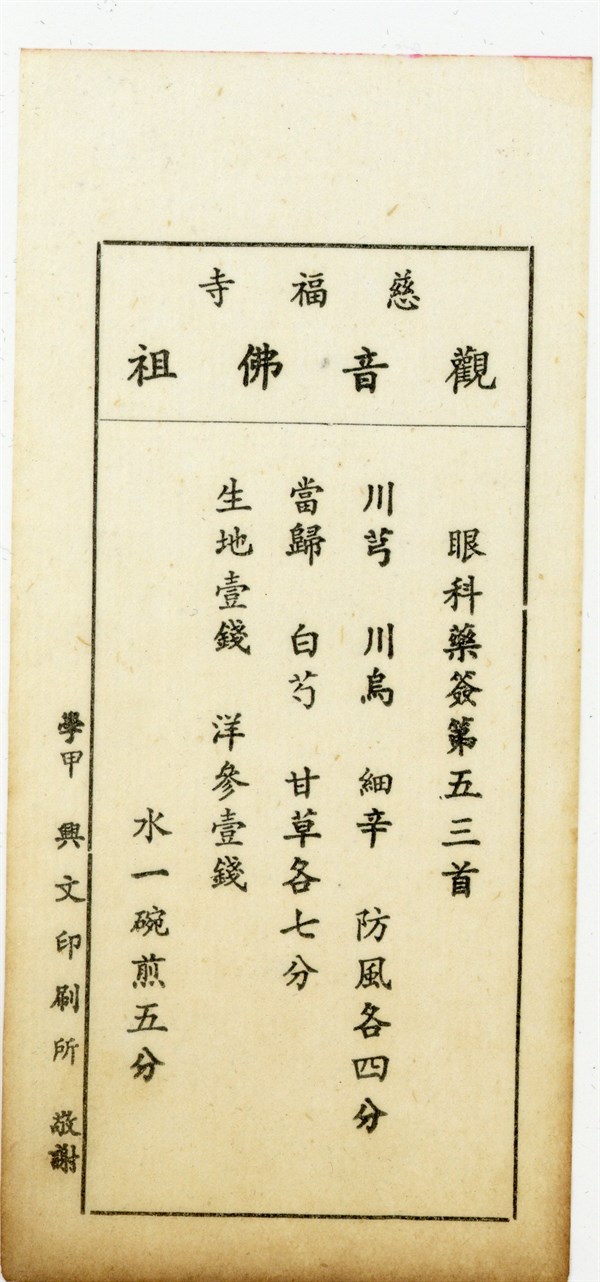 慈福寺
觀音佛祖
眼科藥簽第五三首
川芎　川烏　細辛　防風各四分
當歸　白芍　甘草各七分
生地壹錢　洋參壹錢
水一碗煎五分
學甲　興文印刷所　敬謝